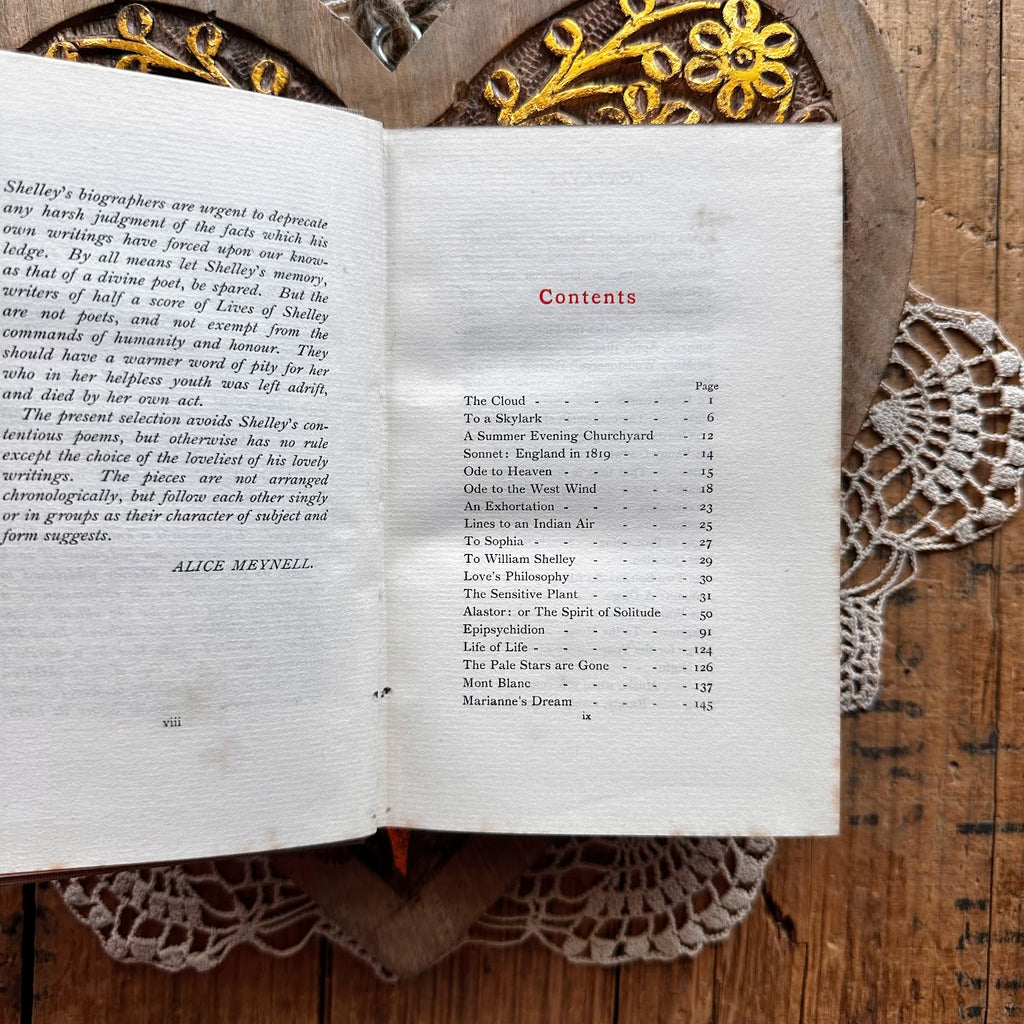 Shelley's biographers are urgent to deprecate
any harsh judgment of the facts which his
own writings have forced upon our know-
ledge. By all means let Shelley's memory,
as that of a divine poet, be spared. But the
writers of half a score of Lives of Shelley
are not poets, and not exempt from the
commands of humanity and honour. They
should have a warmer word of pity for her
who in her helpless youth was left adrift,
and died by her own act.
The present selection avoids Shelley's con-
tentious poems, but otherwise has no rule
except the choice of the loveliest of his lovely
writings. The pieces are not arranged
chronologically, but follow each other singly
or in groups as their character of subject and
form suggests.
ALICE MEYNELL.
viii
Contents
Page
The Cloud - - - - - - 1
To a Skylark - - - - - 6
A Summer Evening Churchyard - 12
Sonnet: England in 1819 - - - 14
Ode to Heaven - - - - - 15
Ode to the West Wind - - - 18
An Exhortation - - - - - 23
Lines to an Indian Air - - - 25
To Sophia - - - - - - 27
To William Shelley - - - - 29
Love's Philosophy - - - - 30
The Sensitive Plant - - - - 31
Alastor: or The Spirit of Solitude - 50
Epipsychidion - - - - - 91
Life of Life - - - - - - 124
The Pale Stars are Gone - - - 126
Mont Blanc - - - - - 137
Marianne's Dream - - - - 145
ix